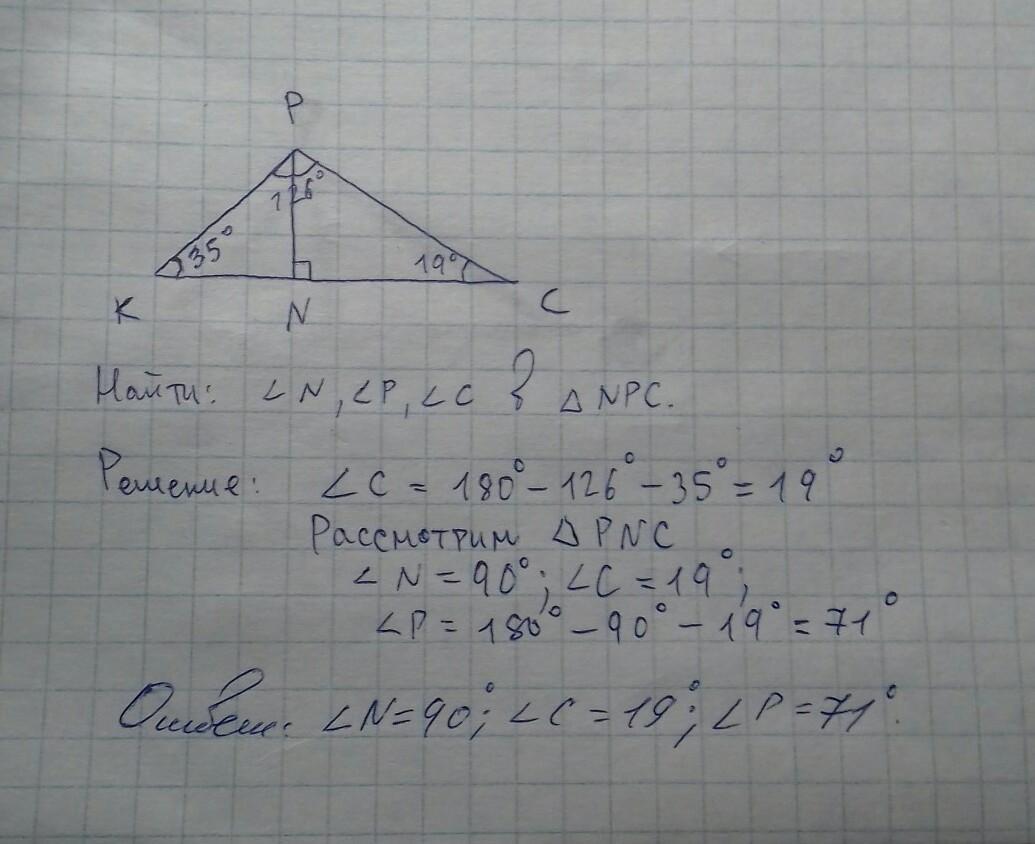 P
126°
35°
19°
K
N
C
Найти: ∠N, ∠P, ∠C в △NPC.
Решение: ∠C = 180° - 126° - 35° = 19°
Рассмотрим △PNC
∠N = 90°; ∠C = 19°;
∠P = 180° - 90° - 19° = 71°
Ответ: ∠N = 90°; ∠C = 19°; ∠P = 71°.